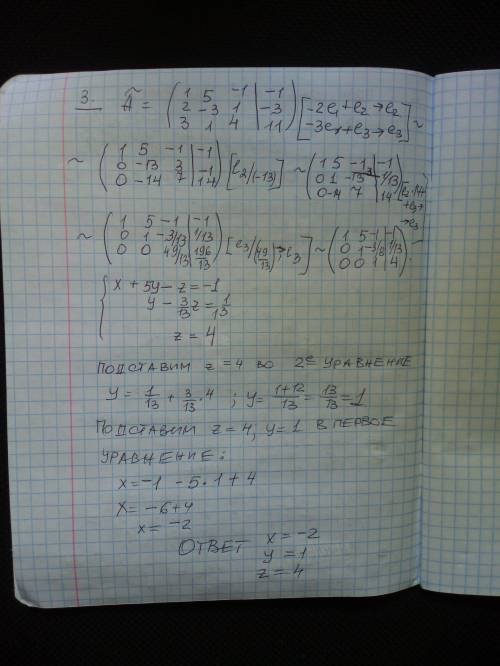 3. Ã = (1 5 -1 | -1
2 -3 1 | -3
3 1 4 | 11) [-2e₁+e₂→e₂
-3e₁+e₃→e₃] ~
~ (1 5 -1 | -1
0 -13 3 | -1
0 -14 7 | 14) [e₂/(-13)] ~ (1 5 -1 | -1
0 1 -3/13 | 1/13
0 -14 7 | 14) [e₂·14
+e₃→
→e₃]
~ (1 5 -1 | -1
0 1 -3/13 | 1/13
0 0 49/13 | 196/13) [e₃/(49/13)→e₃] ~ (1 5 -1 | -1
0 1 -3/13 | 1/13
0 0 1 | 4)
{ x + 5y - z = -1
y - 3/13 z = 1/13
z = 4
ПОДСТАВИМ z = 4 ВО 2ᵉ УРАВНЕНИЕ
y = 1/13 + 3/13 · 4 ; y = 1+12/13 = 13/13 = 1
ПОДСТАВИМ z = 4; y = 1 В ПЕРВОЕ
УРАВНЕНИЕ:
x = -1 - 5·1 + 4
x = -6+4
x = -2
ОТВЕТ x = -2
y = 1
z = 4